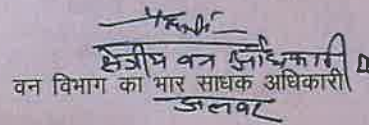 क्षेत्रीय वन अधिकारी
वन विभाग का भार साधक अधिकारी
अलवर